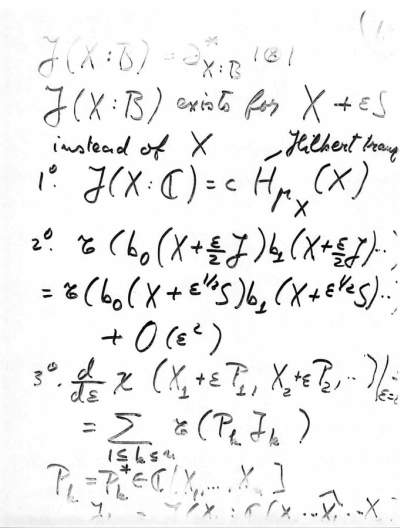 J(X:B) = ∂*_{X:B} 1⊗1
J(X:B) exists for X + εS
instead of X
Hilbert
1°. J(X:ℂ) = c H_{μ_X}(X)
2°. τ(b₀(X+ε/2 J)b₁(X+ε/2 J)...
= τ(b₀(X+ε^{1/2}S)b₁(X+ε^{1/2}S)...
+ O(ε²)
3°. d/dε χ(X₁+εP₁, X₂+εP₂,...)|_{ε=
= Σ_{1≤k≤n} τ(P_k J_k)
P_k = P_k* ∈ ℂ⟨X₁,...X